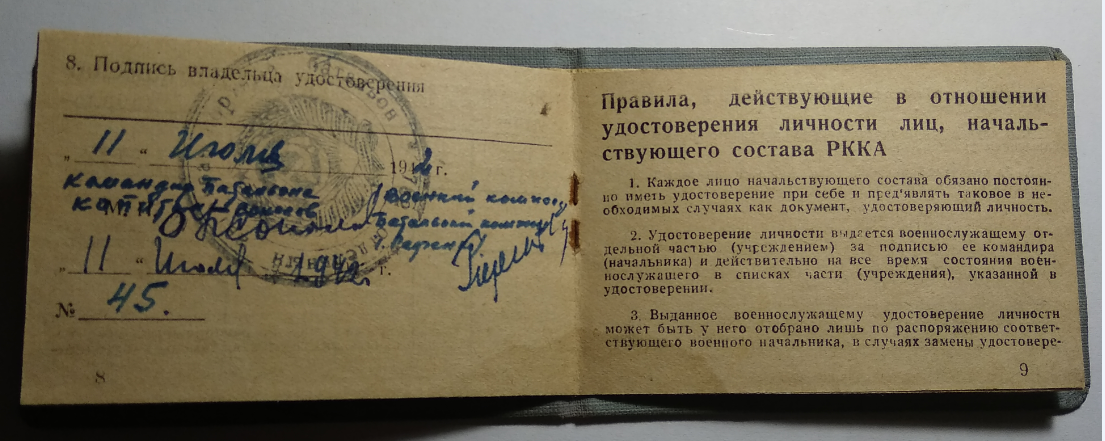 8. Подпись владельца удостоверения
„ 11 “ Июля 1942 г.
Командир Батальона
капитан
Военный комиссар
Батальон. комиссар
„ 11 “ Июля 1942 г.
№ 45.
8
Правила, действующие в отношении
удостоверения личности лиц, началь-
ствующего состава РККА
1. Каждое лицо начальствующего состава обязано постоян-
но иметь удостоверение при себе и пред'являть таковое в не-
обходимых случаях как документ, удостоверяющий личность.
2. Удостоверение личности выдается военнослужащему от-
дельной частью (учреждением) за подписью ее командира
(начальника) и действительно на все время состояния воен-
нослужащего в списках части (учреждения), указанной в
удостоверении.
3. Выданное военнослужащему удостоверение личности
может быть у него отобрано лишь по распоряжению соответ-
ствующего военного начальника, в случаях замены удостовере-
9